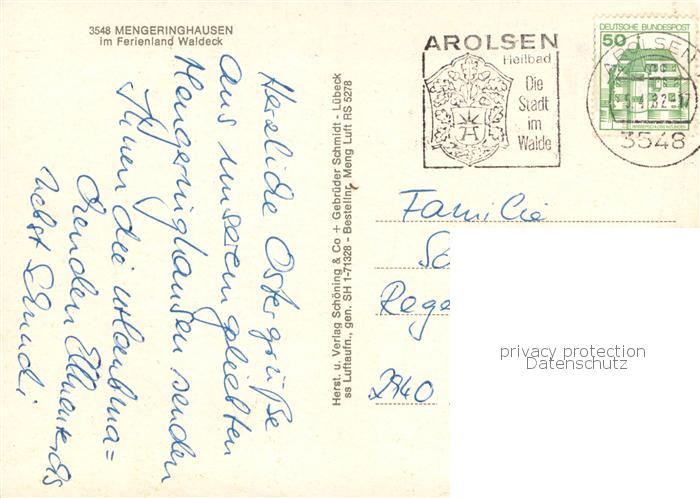 3548 MENGERINGHAUSEN
im Ferienland Waldeck
Herzliche Ostergrüße
aus unserem geliebten
Mengeringhausen senden
Ihnen die urlaubma=
chenden
nebst
Herst. u. Verlag Schöning & Co + Gebrüder Schmidt - Lübeck
ss Luftaufn., gen. SH 1-71328 - Bestellnr. Meng Luft RS 5278
AROLSEN
Heilbad
Die
Stadt
im
Walde
DEUTSCHE BUNDESPOST
50
AROLSEN
3548
Familie
2940
privacy protection
Datenschutz